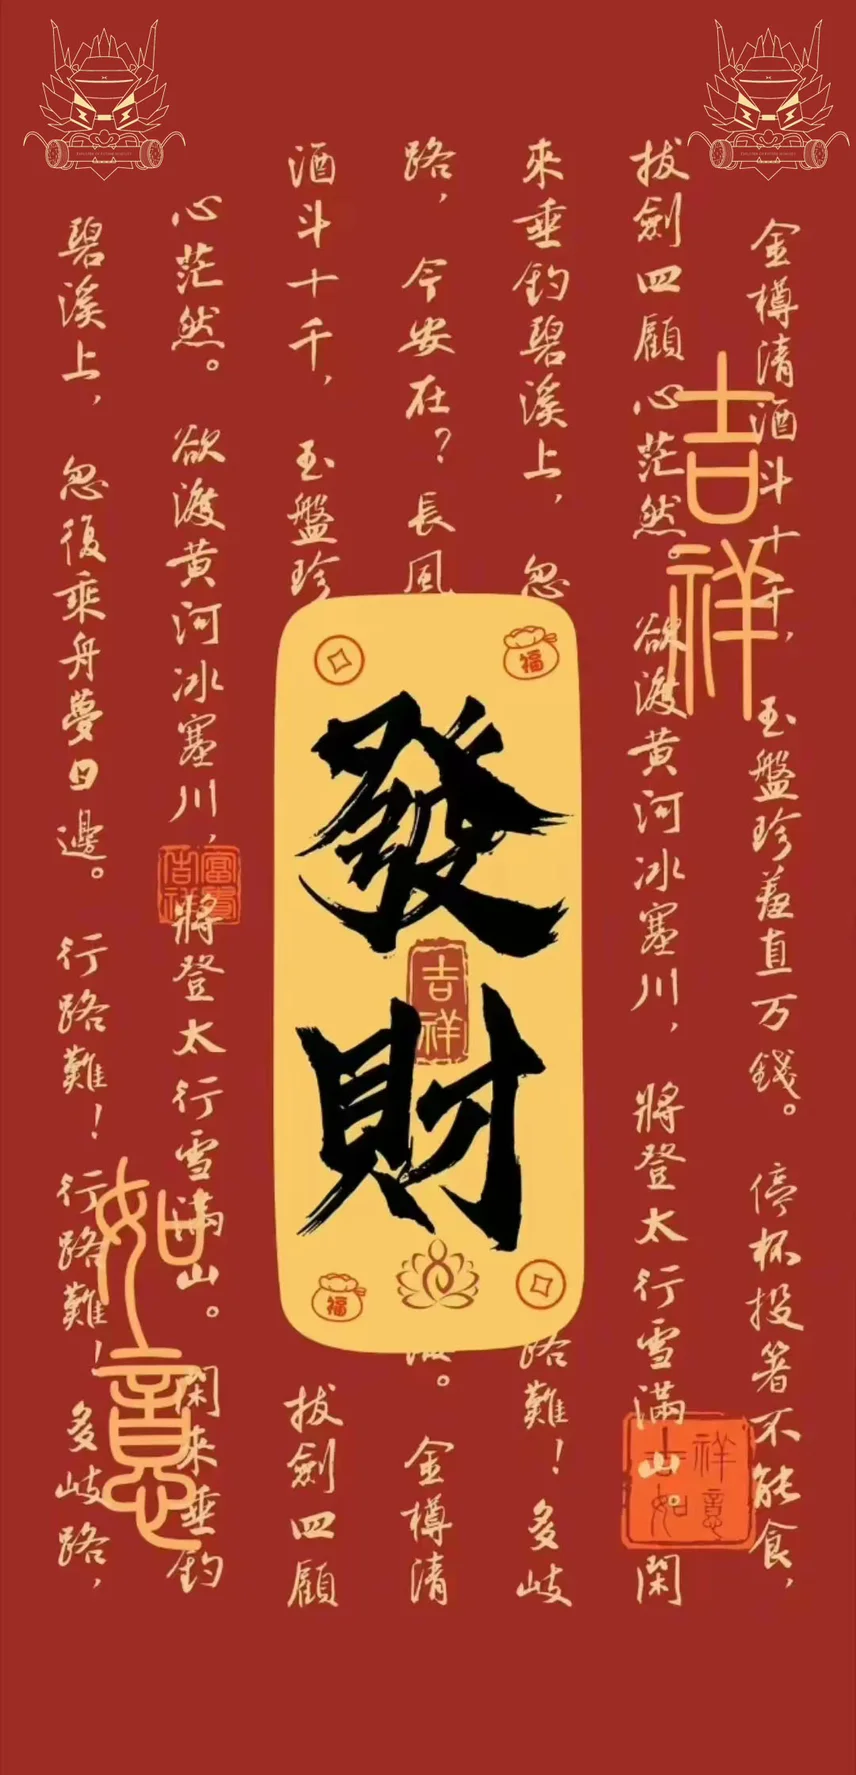 金樽清酒斗十千，玉盤珍羞直万錢。停杯投箸不能食，
拔劍四顧心茫然。欲渡黄河冰塞川，將登太行雪滿山。閑
來垂釣碧溪上，忽
路難！多岐
路，今安在？長風
。金樽清
酒斗十千，玉盤珍
拔劍四顧
心茫然。欲渡黄河冰塞川，將登太行雪滿山。閑來垂釣
碧溪上，忽復乘舟夢日邊。行路難！行路難！多岐路，
吉祥
福
發財
吉祥
福
富貴吉祥
如意
祥意吉如